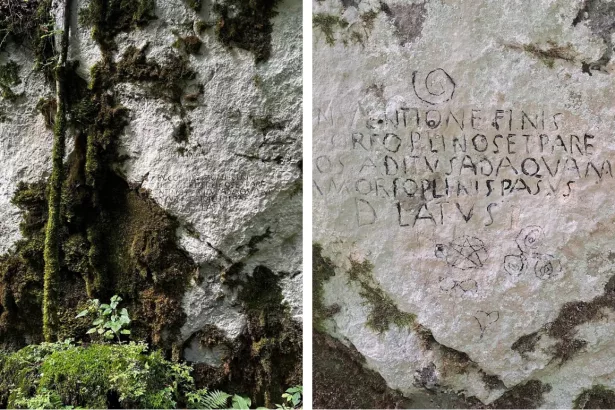 NTIONE FINIS
RFOPLINOSETPARE
OS ADITVSADAQVAM
MORFOPLINISPASVS
D LATVS